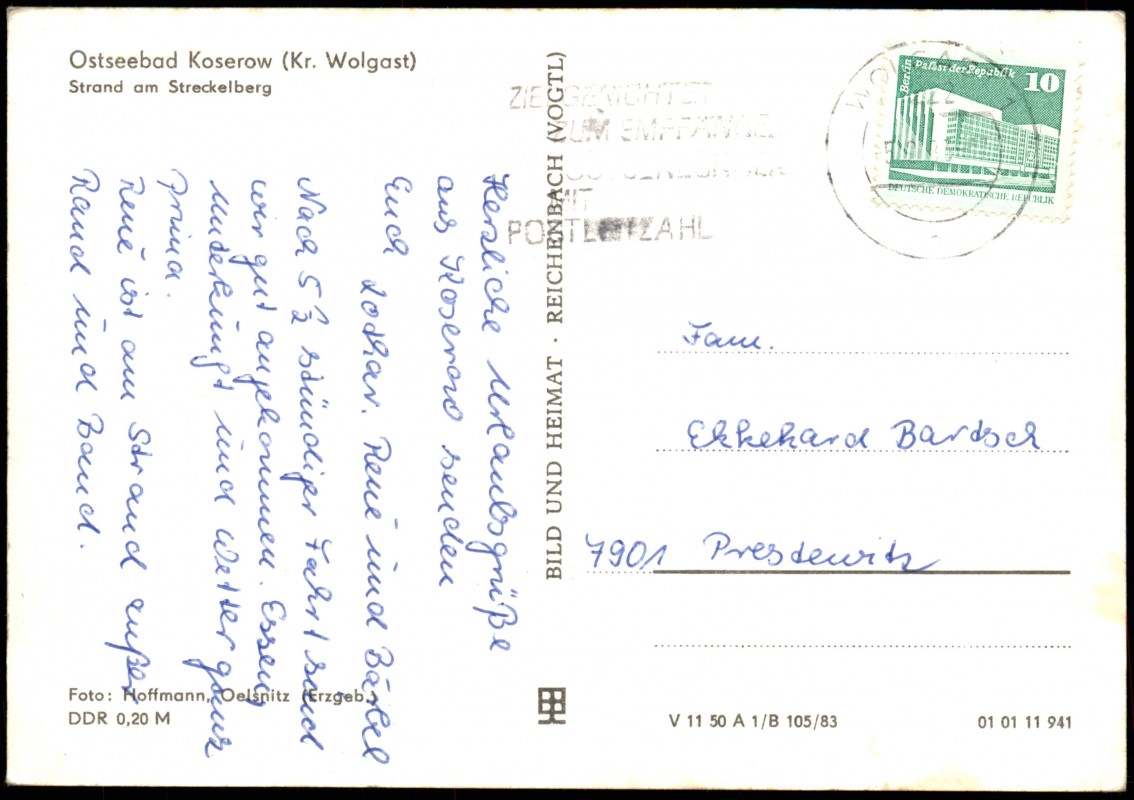 Ostseebad Koserow (Kr. Wolgast)
Strand am Streckelberg
Herzliche Urlaubsgrüße
aus Koserow senden
Euch Lothar. René und Bärbel
Nach 5 1/2 stündiger Fahrt sind
wir gut angekommen. Essen,
Unterkunft und Wetter ganz
prima.
René ist am Strand außer
Rand und Band.
Foto: Hoffmann, Oelsnitz (Erzgeb.)
DDR 0,20 M
BILD UND HEIMAT · REICHENBACH (VOGTL)
ZUM EMPFÄNGER
MIT
POSTLEITZAHL
WOLGAST 1
Berlin Palast der Republik 10
DEUTSCHE DEMOKRATISCHE REPUBLIK
Fam.
Ekkehard Bartsch
7901 Prestewitz
V 11 50 A 1/B 105/83
01 01 11 941